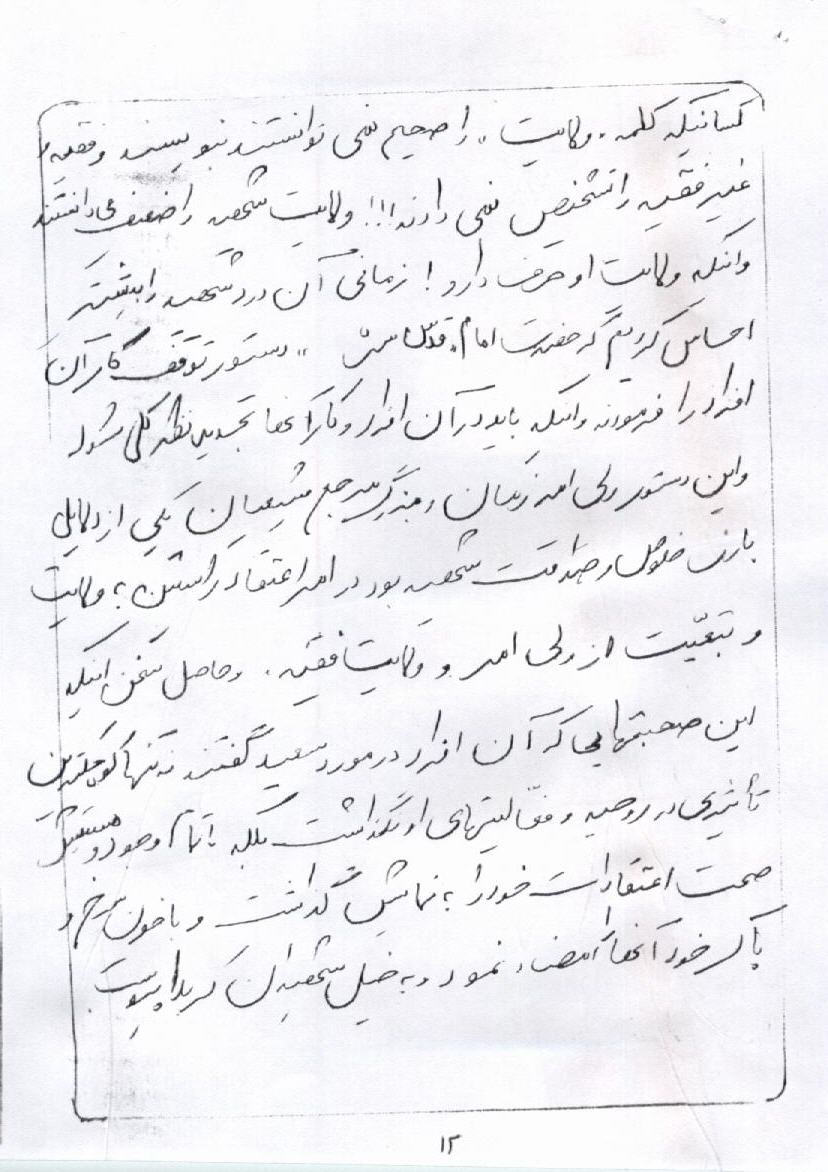 کسانیکه کلمه «ولایت» را صحیح نمی توانستند بنویسند و فقیه و
غیر فقیه را تشخیص نمی دادند!!! ولایت شهید را ضعیف می دانستند
و اینکه ولایت او حرف دارد! زمانی آن درد شهید را بیشتر
احساس کردیم که حضرت امام «قدس سره» دستور توقف کار آن
افراد را فرمودند و اینکه باید در آن افراد و کار آنها تجدید نظر کلی شود
و این دستور ولی امر زمان و بزرگ مرجع شیعیان یکی از دلایل
بارز خلوص و صداقت شهید بود در امر اعتقاد داشتن به ولایت
و تبعیّت از ولی امر و ولایت فقیه. و حاصل سخن اینکه
این صحبتهایی که آن افراد در مورد سعید گفتند نه تنها کوچکترین
تأثیری در روحیه و فعّالیتهای او نگذاشت بلکه با تمام وجود و
صحت اعتقادات خود را به نمایش گذاشت و با خون سرخ و
پاک خود آنها را امضاء نمود و به خیل شهیدان کربلا پیوست
۱۲